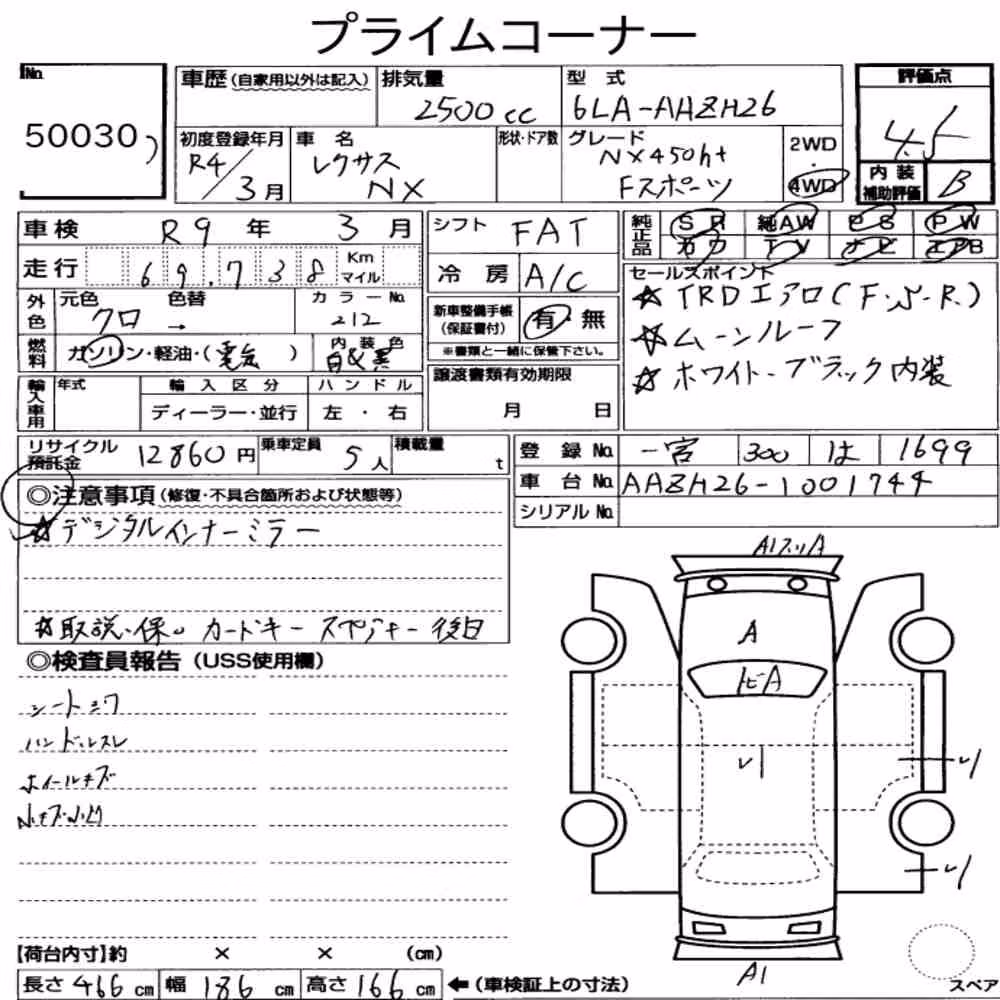 プライムコーナー
No.
50030
車歴 (自家用以外は記入)
排気量
2500cc
型式
6LA-AAZH26
評価点
4.5
初度登録年月
R4/3月
車名
レクサス
NX
形状・ドア数
グレード
NX450h+
Fスポーツ
2WD
・
4WD
内装
補助評価
B
車検 R9年 3月
シフト FAT
純正品
SR 純AW PS PW
カワ TV ナビ エアB
走行 69,738 Km マイル
冷房 A/C
セールスポイント
☆TRDエアロ(F.S.R.)
☆ムーンルーフ
☆ホワイト・ブラック内装
外色
元色 色替
クロ →
カラーNo.
212
新車整備手帳
(保証書付)
有 無
※書類と一緒に保管下さい。
燃料
ガソリン・軽油・(電気)
内装色
白&黒
譲渡書類有効期限
月 日
輸入車用
年式
輸入区分
ディーラー・並行
ハンドル
左・右
リサイクル預託金 12860円
乗車定員 5人
積載量 t
登録No. 一宮 300 は 1699
車台No. AAZH26-1001744
シリアルNo.
◎注意事項(修復・不具合箇所および状態等)
☆デジタルインナーミラー
☆取説、保、カードキー スペアキー 後日
◎検査員報告(USS使用欄)
シートシワ
ハンドルスレ
ホイールキズ
小キズ小凹
A1 A
A
トビA
A1
スペア
【荷台内寸】約 × × (cm)
長さ 466 cm 幅 186 cm 高さ 166 cm ←(車検証上の寸法)